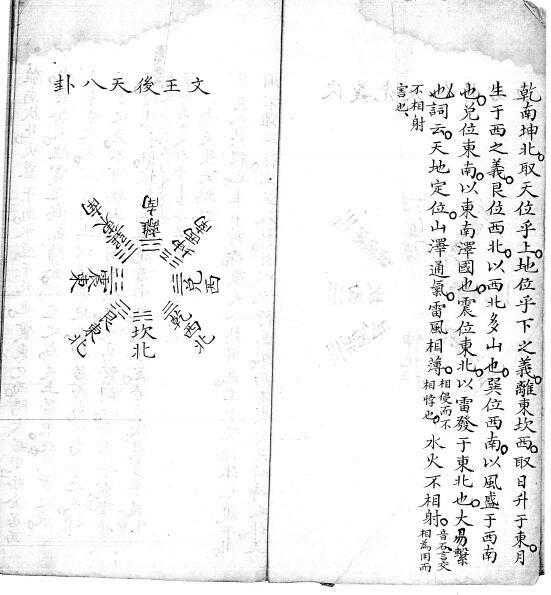 乾南坤北取天位乎上地位乎下之義離東坎西取日升于東月
生于西之義艮位西北以西北多山也巽位西南以風盛于西南
也兌位東南以東南澤國也震位東北以雷發于東北也大易繫
也詞云天地定位山澤通氣雷風相薄相侵而不相悖也水火不相射音石言交相為用而
不相射害也
文王後天八卦
離南
坤西南
兌西
乾西北
坎北
艮東北
震東
巽東南